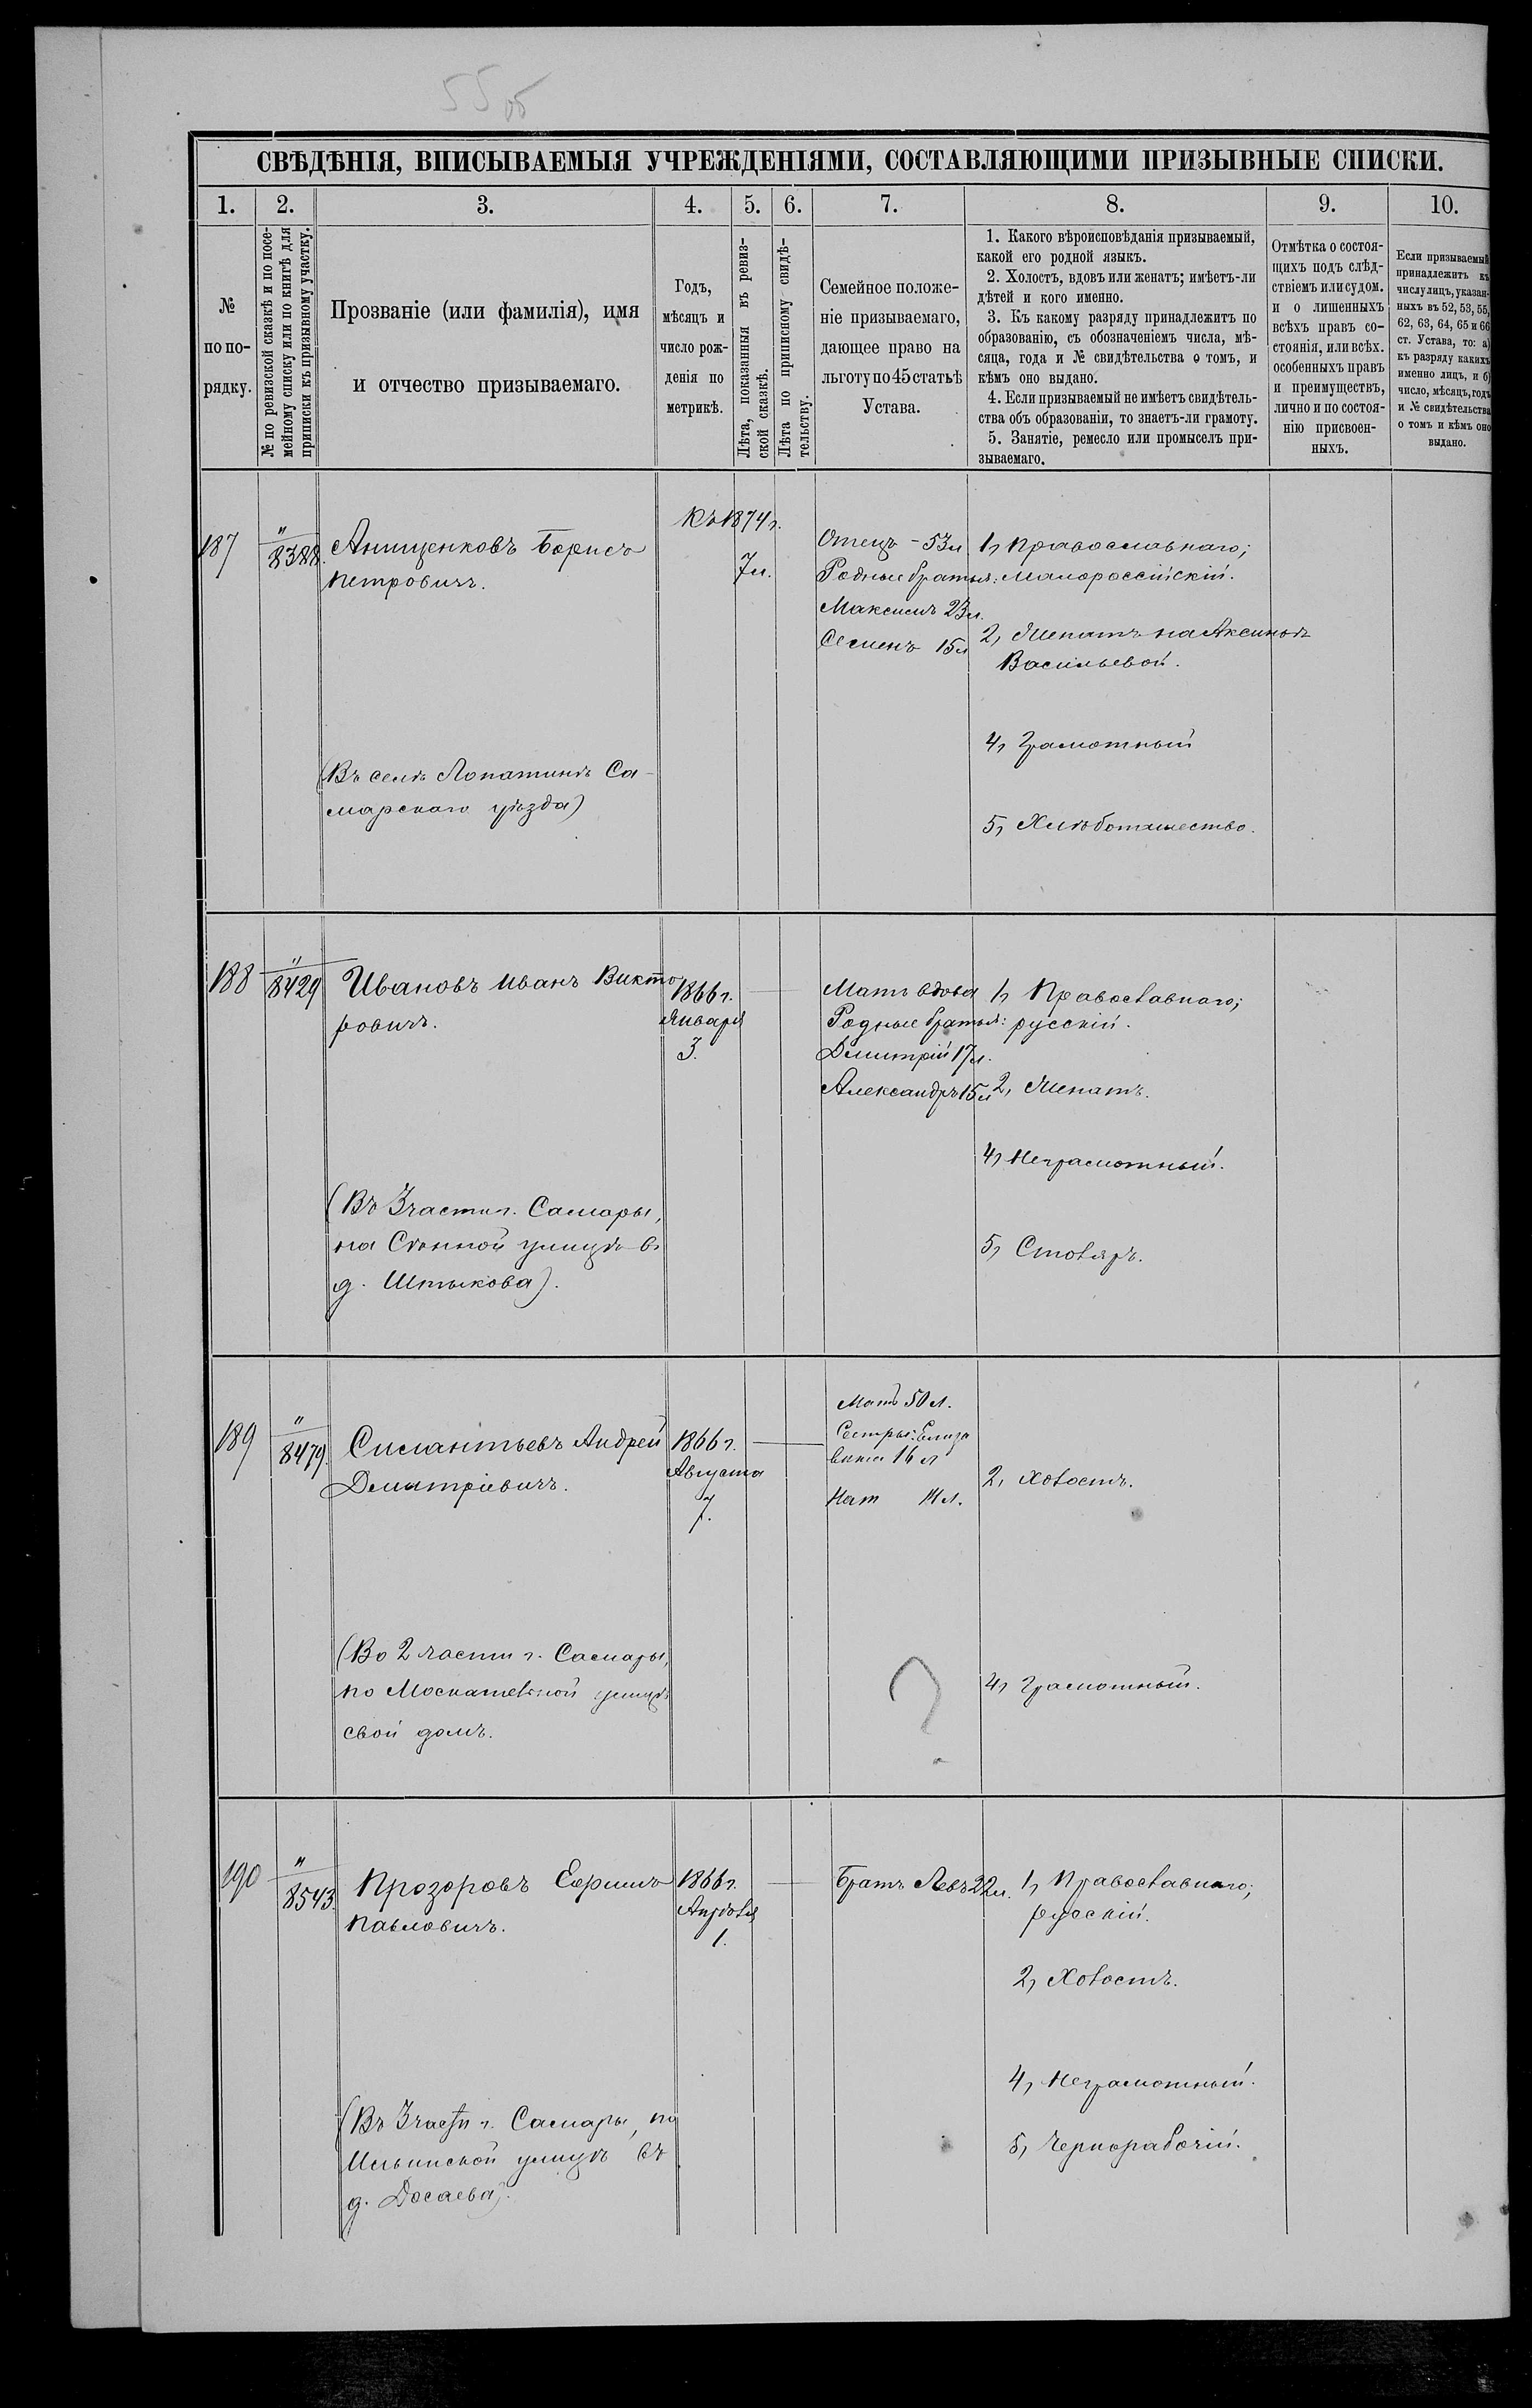 55 об
СВѢДѢНІЯ, ВПИСЫВАЕМЫЯ УЧРЕЖДЕНІЯМИ, СОСТАВЛЯЮЩИМИ ПРИЗЫВНЫЕ СПИСКИ.
1. 2. 3. 4. 5. 6. 7. 8. 9. 10.
№
по по-
рядку.
№ по ревизской сказкѣ и по посе-
мейному списку или по книгѣ для
приписки къ призывному участку.
Прозваніе (или фамилія), имя
и отчество призываемаго.
Годъ,
мѣсяцъ и
число рож-
денія по
метрикѣ.
Лѣта, показанныя въ ревиз-
ской сказкѣ.
Лѣта по приписному свидѣ-
тельству.
Семейное положе-
ніе призываемаго,
дающее право на
льготу по 45 статьѣ
Устава.
1. Какого вѣроисповѣданія призываемый,
какой его родной языкъ.
2. Холостъ, вдовъ или женатъ; имѣетъ-ли
дѣтей и кого именно.
3. Къ какому разряду принадлежитъ по
образованію, съ обозначеніемъ числа, мѣ-
сяца, года и № свидѣтельства о томъ, и
кѣмъ оно выдано.
4. Если призываемый не имѣетъ свидѣтель-
ства объ образованіи, то знаетъ-ли грамоту.
5. Занятіе, ремесло или промыселъ при-
зываемаго.
Отмѣтка о состоя-
щихъ подъ слѣд-
ствіемъ или судом.
и о лишенныхъ
всѣхъ правъ со-
стоянія, или всѣх.
особенныхъ правъ
и преимуществъ,
лично и по состоя-
нію присвоен-
ныхъ.
Если призываемый
принадлежитъ къ
числу лицъ, указан-
ныхъ въ 52, 53, 55,
62, 63, 64, 65 и 66
ст. Устава, то: а)
къ разряду какихъ
именно лицъ, и б)
число, мѣсяцъ, годъ
и № свидѣтельства
о томъ и кѣмъ оно
выдано.
187
"
8388.
Анищенковъ Борисъ
Петровичъ.
(Въ селѣ Лопатинѣ Са-
марскаго уѣзда)
Къ 1874 г.
7 л.
Отецъ - 53 л
Родные братья:
Максимъ 23 л.
Семенъ 15 л
1, Православнаго;
Малороссійскій.
2, Женатъ на Аксиньѣ
Васильевой.
4, Грамотный
5, Хлѣбопашество.
188
"
8429
Ивановъ Иванъ Викто
ровичъ.
(Въ 3 части г. Самары,
на Сѣнной улицѣ въ
д. Штыкова).
1866 г.
Января
3.
Мать вдова
Родные братья:
Дмитрій 17 л.
Александръ 15 л
1, Православнаго;
русскій.
2, Женатъ.
4, Неграмотный.
5, Столяръ.
189
"
8479.
Силантьевъ Андрей
Дмитріевичъ.
(Во 2 части г. Самары,
по Москательной улицѣ
свой домъ.
1866 г.
Августа
7.
Мать 50 л.
Сестры: Елиза
вета 16 л
Нат 14 л.
?
2, Холостъ.
4, Грамотный.
190
"
8543.
Прозоровъ Ефимъ
Павловичъ.
(Въ 3 части г. Самары, по
Ильинской улицѣ въ
д. Досаева).
1866 г.
Апрѣля
1.
Братъ Левъ 22 л.
1, Православнаго;
русскій.
2, Холостъ.
4, Неграмотный.
5, Чернорабочій.